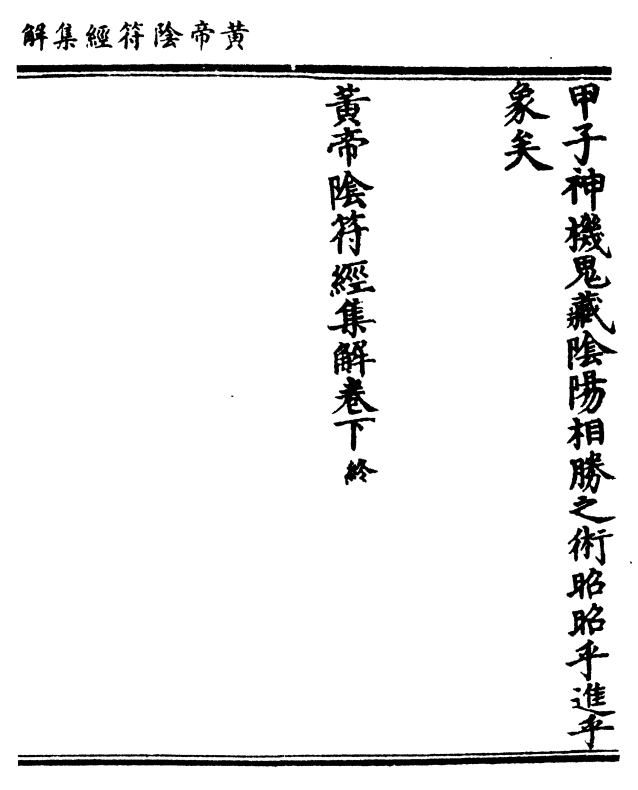 黃帝陰符經集解
甲子神機鬼藏陰陽相勝之術昭昭乎進乎
象矣
黃帝陰符經集解卷下終